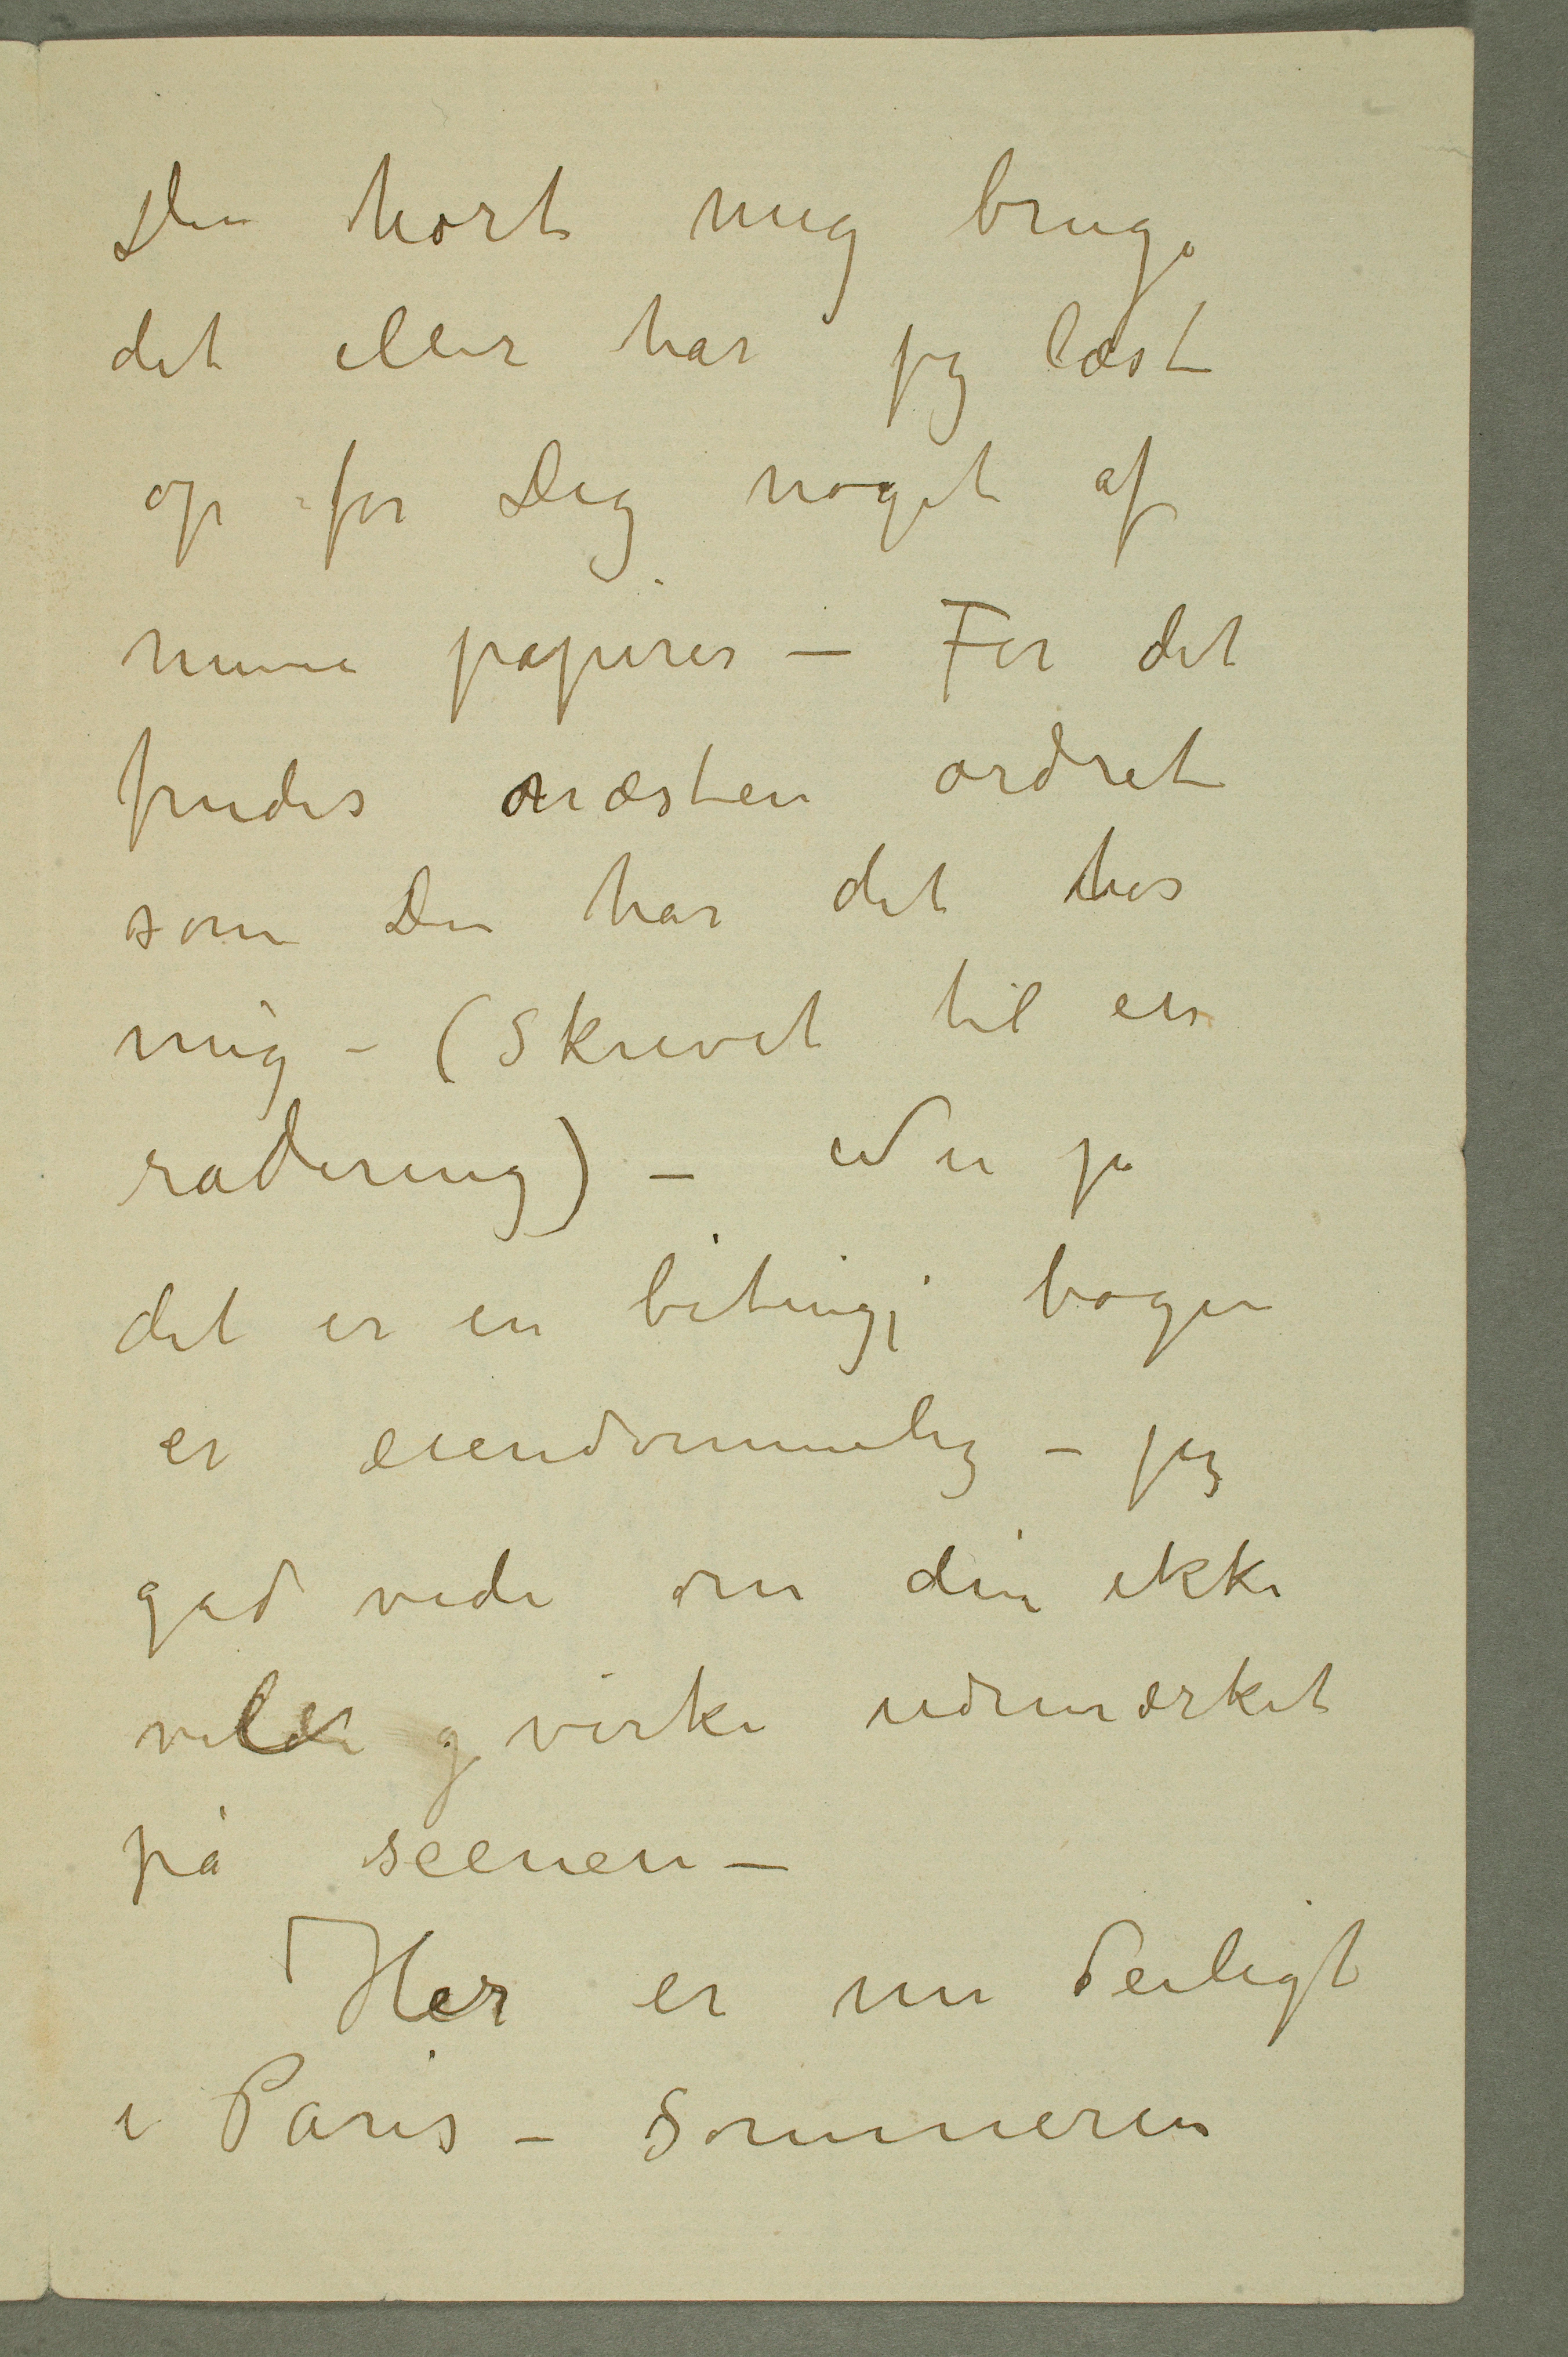 Du hørt mig bruge
det eller har jeg læst
op for Dig noget af
mine papirer — For det
findes næsten ordret
som Du har det hos
mig – (Skrevet til en
radering) – Nu ja
det er en biting; bogen
er eiendommelig – jeg
gad vide om den ikke
vilde virke udmærket
på scenen –
Her er nu deiligt
i Paris – Sommeren